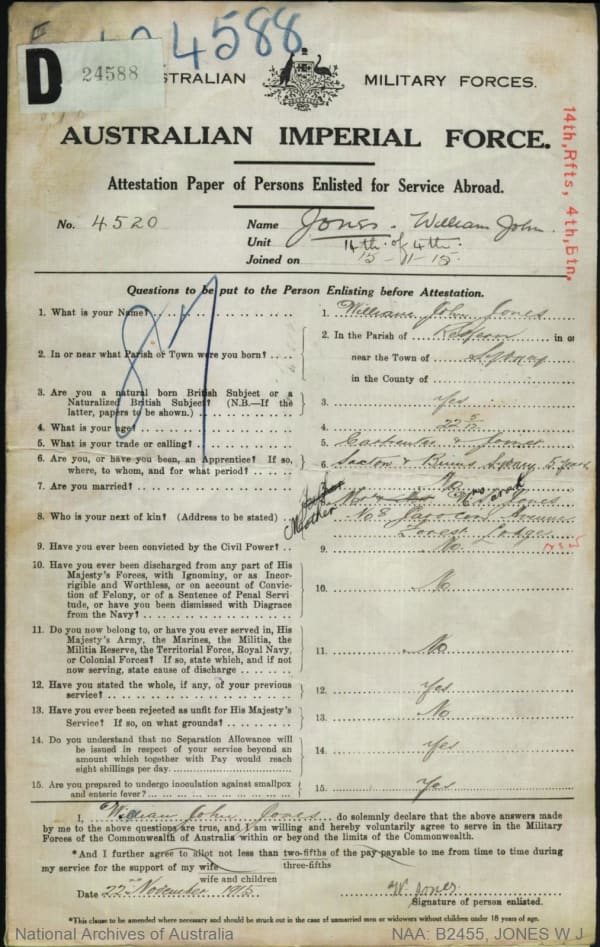 24588
D
24588
AUSTRALIAN MILITARY FORCES.
AUSTRALIAN IMPERIAL FORCE.
14th, Rfts, 4th, Btn,
Attestation Paper of Persons Enlisted for Service Abroad.
No. 4520 Name Jones. William John.
Unit 14th of 4th.
Joined on 15-11-15.
Questions to be put to the Person Enlisting before Attestation.
87
1. What is your Name? 1. William John Jones
2. In or near what Parish or Town were you born? 2. In the Parish of in or
near the Town of Sydney
in the County of
3. Are you a natural born British Subject or a
Naturalized British Subject? (N.B.—If the
latter, papers to be shown.) 3. Yes
4. What is your age? 4. 22
5. What is your trade or calling? 5. Carpenter & Joiner
6. Are you, or have you been, an Apprentice? If so,
where, to whom, and for what period? 6. & Sydney 5
7. Are you married? 7. No
8. Who is your next of kin? (Address to be stated) Mother 8. Mrs Sarah Jones
No 8
Forest Lodge
9. Have you ever been convicted by the Civil Power? 9. No
10. Have you ever been discharged from any part of His
Majesty's Forces, with Ignominy, or as Incor-
rigible and Worthless, or on account of Convic-
tion of Felony, or of a Sentence of Penal Servi-
tude, or have you been dismissed with Disgrace
from the Navy? 10. No
11. Do you now belong to, or have you ever served in, His
Majesty's Army, the Marines, the Militia, the
Militia Reserve, the Territorial Force, Royal Navy,
or Colonial Forces? If so, state which, and if not
now serving, state cause of discharge 11. No
12. Have you stated the whole, if any, of your previous
service? 12. Yes
13. Have you ever been rejected as unfit for His Majesty's
Service? If so, on what grounds? 13. No
14. Do you understand that no Separation Allowance will
be issued in respect of your service beyond an
amount which together with Pay would reach
eight shillings per day. 14. Yes
15. Are you prepared to undergo inoculation against smallpox
and enteric fever? 15. Yes
I, William John Jones do solemnly declare that the above answers made
by me to the above questions are true, and I am willing and hereby voluntarily agree to serve in the Military
Forces of the Commonwealth of Australia within or beyond the limits of the Commonwealth.
*And I further agree to allot not less than two-fifths of the pay payable to me from time to time during
three-fifths
my service for the support of my wife
wife and children
Date 22nd November 1915 W. Jones
Signature of person enlisted.
*This clause to be amended where necessary and should be struck out in the case of unmarried men or widowers without children under 18 years of age.
National Archives of Australia NAA: B2455, JONES W J